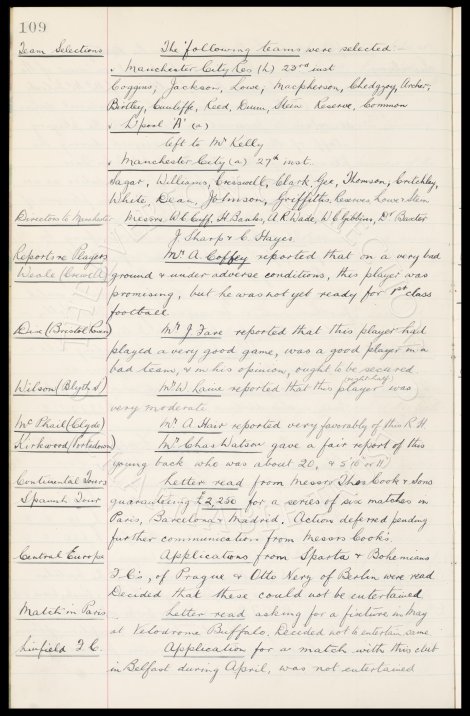 109
Team Selections The following teams were selected:
v Manchester City Res (h) 23rd inst
Coggins, Jackson, Lowe, Macpherson, Chedgzoy, Archer,
Bentley, Cunliffe, Reed, Dunn, Stein Reserve, Common
v L'pool 'A' (a)
left to Mr Kelly
v Manchester City (a) 27th inst.
Sagar, Williams, Cresswell, Clark, Gee, Thomson, Critchley,
White, Dean, Johnson, Griffiths, Reserves Lowe & Stein
Directors to Manchester Messrs W.C. Cuff, H. Banks, A.R. Wade, W.C. Gibbins, Dr Baxter
J. Sharp & C. Hayes
Reports re Players Mr A Coffey reported that on a very bad
ground & under adverse conditions, this player was
promising, but he was not yet ready for 1st class
football.
Mr J. Fare reported that this player had
played a very good game, was a good player in a
bad team, & in his opinion, ought to be secured
Wilson (Blyth S) Mr W. Laine reported that this player (right half) was
very moderate
McPhail (Clyde) Mr A. Hair reported very favorably of this R.H.
Kirkwood (Portadown) Mr Chas Watson gave a fair report of this
young back who was about 20, & 5'10" or 11"
Continental Tours Letter read from Messrs Thos Cook & Sons
Spanish Tour guaranteeing £2,250 for a series of six matches in
Paris, Barcelona & Madrid; Action deferred pending
further communication from Messrs Cook's.
Central Europe Applications from Sparta & Bohemians
F.C's, of Prague & Otto Nerz of Berlin were read
Decided that these could not be entertained
Match in Paris Letter read asking for a fixture in May
at Velodrome Buffalo, Decided not to entertain same
Linfield F.C. Application for a match with this club
in Belfast during April, was not entertained